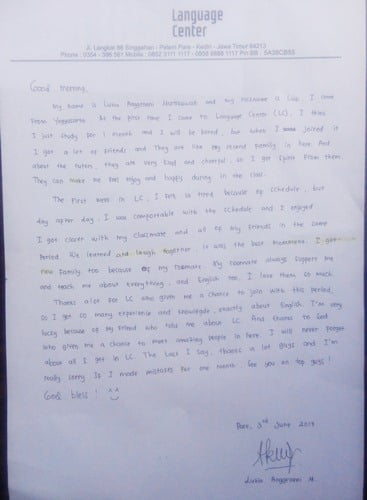 Language
Center
Jl. Langkat 88 Singgahan - Pelem Pare - Kediri - Jawa Timur 64213
Phone : 0354 - 396 561 Mobile : 0852 3111 1177 - 0856 8888 1117 Pin BB : 5A38CB55
Good morning,
My name is Lukia Anggraini and my nickname is Lukia. I come
From Yogyakarta. At the first time I came to Language Center (LC), I think
I just study for 1 month and I will be bored, but when I joined it
I got a lot of friends and they are like my second family in here. And
about the tutors, they are very kind and cheerful, so I got spirit from them.
They can make me feel enjoy and happy during in the class.
The First week in LC, I felt so tired because of schedule, but
day after day, I was comfortable with the schedule and I enjoyed.
I got closer with my classmate and all of my friends in the same
period. We learned and laugh together, it was the best moment. I got
new family too because of my roomate. My roomate always support me
and teach me about everything, and English too. I love them so much.
Thanks a lot for LC who give me a chance to join with this period,
So I got so many experience and knowledge, exactly about English. I'm very
lucky because of my friend who told me about LC. And thanks to God
who given me a chance to meet amazing people in here. I will never forget
about all I get in LC. The last I say, thanks a lot guys and I'm
really sorry if I made mistakes for one month. See you on top guys!
God bless!
Pare, 3rd June 2017
Lukia Anggraini M